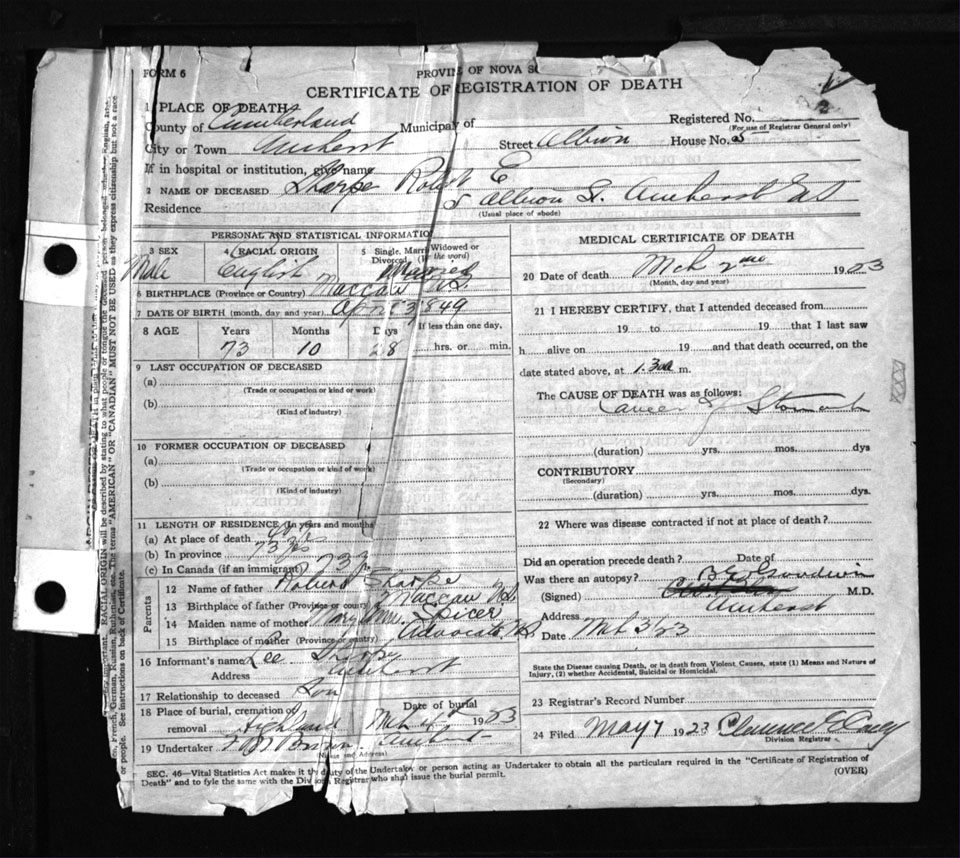 FORM 6
PROVIN OF NOVA SC
CERTIFICATE OF REGISTRATION OF DEATH
1 PLACE OF DEATH
County of Cumberland Municipality of Registered No.
(For use of Registrar General only)
City or Town Amherst Street Albion House No. 5
If in hospital or institution, give name
2 NAME OF DECEASED Sharpe Robert E
Residence 5 Albion St. Amherst
(Usual place of abode)
PERSONAL AND STATISTICAL INFORMATION
3 SEX 4 RACIAL ORIGIN 5 Single, Married Widowed or Divorced (the word)
Male English Married
6 BIRTHPLACE (Province or Country) Maccan N.S.
7 DATE OF BIRTH (month, day and year) April 3 1849
8 AGE Years Months Days If less than one day,
73 10 28 hrs. or min.
9 LAST OCCUPATION OF DECEASED
(a)
(Trade or occupation or kind or work)
(b)
(Kind of industry)
10 FORMER OCCUPATION OF DECEASED
(a)
(Trade or occupation or kind of work)
(b)
(Kind of industry)
11 LENGTH OF RESIDENCE (In years and months
(a) At place of death
(b) In province 73 yrs
(c) In Canada (if an immigrant) 73
Parents
12 Name of father Robert Sharpe
13 Birthplace of father (Province or country) Maccan N.S.
14 Maiden name of mother Mary Spicer
15 Birthplace of mother (Province or country) Advocate N.S.
16 Informant's name Lee Sharpe
Address Amherst
17 Relationship to deceased Son
18 Place of burial, cremation or removal Highland Date of burial Mch 1923
19 Undertaker Amherst
(Name and Address)
MEDICAL CERTIFICATE OF DEATH
20 Date of death Mch 2nd 1923
(Month, day and year)
21 I HEREBY CERTIFY, that I attended deceased from
19 to 19 that I last saw
h alive on 19 and that death occurred, on the
date stated above, at 1.30 a m.
The CAUSE OF DEATH was as follows:
Cancer of Stomach
(duration) yrs. mos. dys
CONTRIBUTORY
(Secondary)
(duration) yrs. mos. dys.
22 Where was disease contracted if not at place of death?
Did an operation precede death? Date of
Was there an autopsy?
(Signed) Goodwin M.D.
Address Amherst
Date Mch 3 23
State the Disease causing Death, or in death from Violent Causes, state (1) Means and Nature of
Injury, (2) whether Accidental, Suicidal or Homicidal.
23 Registrar's Record Number
24 Filed May 7 1923 Clarence E Casey
Division Registrar
SEC. 46—Vital Statistics Act makes it the duty of the Undertaker or person acting as Undertaker to obtain all the particulars required in the "Certificate of Registration of
Death" and to fyle the same with the Division Registrar who shall issue the burial permit. (OVER)
important. RACIAL ORIGIN will be described by stating to what people or tongue the deceased person belonged whether English,
French, German, Russian, Ruthenian, etc. The terms "AMERICAN" OR "CANADIAN" MUST NOT BE USED as they express citizenship but not a race
or people. See instructions on back of Certificate.